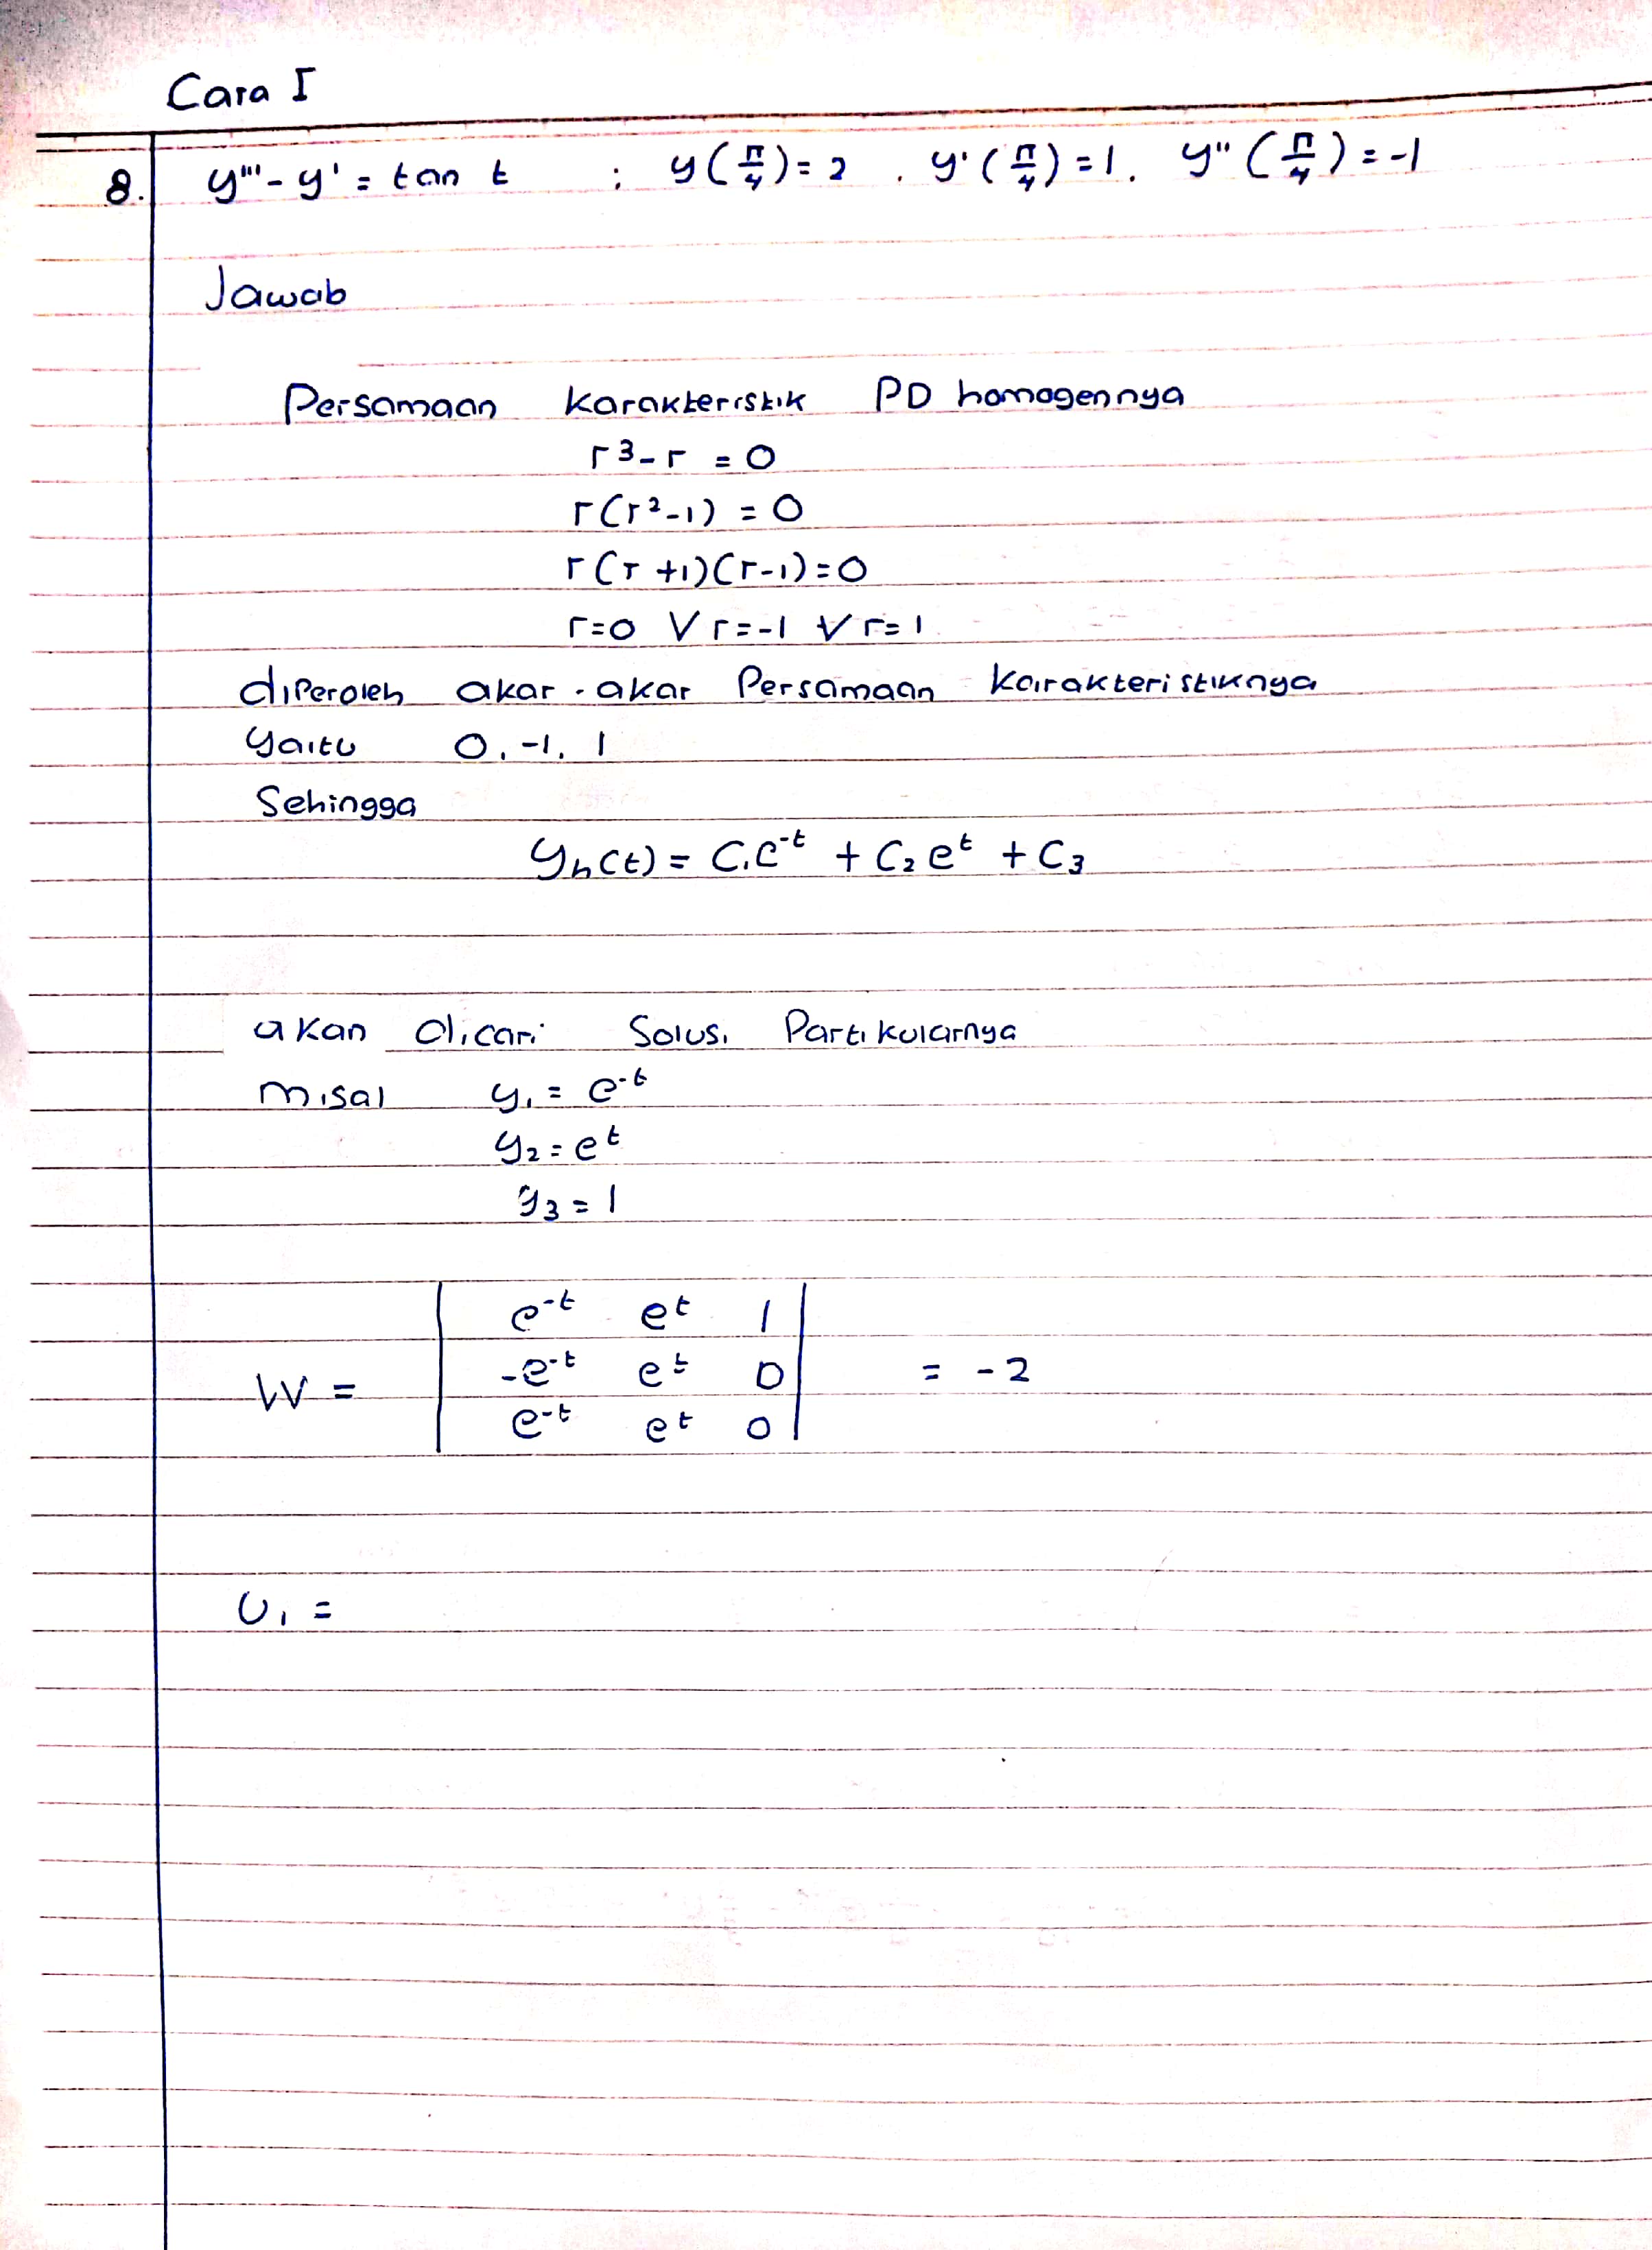 Cara I
8. y''' - y' = tan t ; y(π/4) = 2 , y'(π/4) = 1 , y''(π/4) = -1
Jawab
Persamaan karakteristik PD homogennya
r³ - r = 0
r(r² - 1) = 0
r(r + 1)(r - 1) = 0
r = 0 ∨ r = -1 ∨ r = 1
diperoleh akar-akar Persamaan karakteristiknya
yaitu 0, -1, 1
Sehingga
yₕ(t) = C₁e⁻ᵗ + C₂eᵗ + C₃
akan dicari Solusi Partikularnya
misal y₁ = e⁻ᵗ
y₂ = eᵗ
y₃ = 1
W = | e⁻ᵗ eᵗ 1 |
| -e⁻ᵗ eᵗ 0 | = -2
| e⁻ᵗ eᵗ 0 |
U₁ =